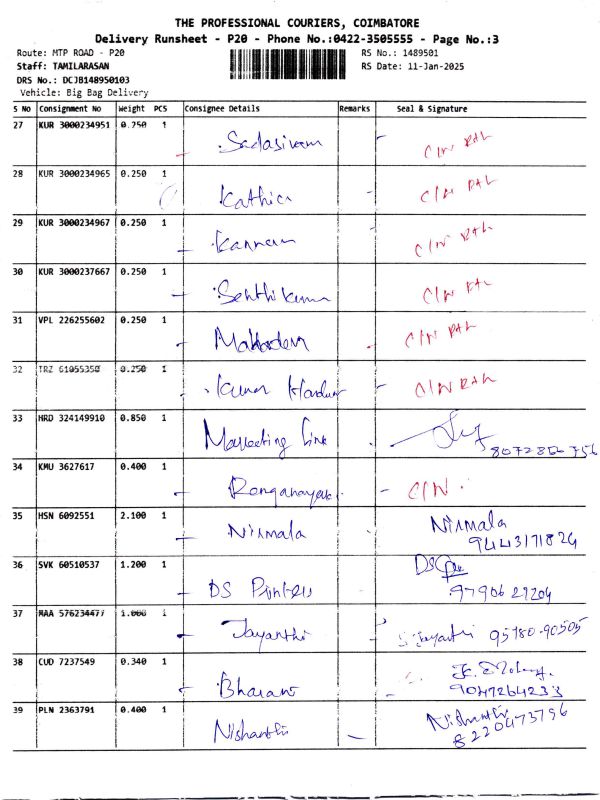 THE PROFESSIONAL COURIERS, COIMBATORE
Delivery Runsheet - P20 - Phone No.:0422-3505555 - Page No.:3
Route: MTP ROAD - P20 RS No.: 1489501
Staff: TAMILARASAN RS Date: 11-Jan-2025
DRS No.: DCJB148950103
Vehicle: Big Bag Delivery
S No Consignment No Weight PCS Consignee Details Remarks Seal & Signature
27 KUR 3000234951 0.250 1 Sadasivam C/N
28 KUR 3000234965 0.250 1 Kathica C/N
29 KUR 3000234967 0.250 1 Kannan C/N
30 KUR 3000237667 0.250 1 Senthikuma C/N
31 VPL 226255602 0.250 1 Mahadeva C/N
32 TRZ 61055350 0.250 1 Kumar C/N
33 HRD 324149910 0.850 1 Marketing Link
34 KMU 3627617 0.400 1 Renganayaki C/N
35 HSN 6092551 2.100 1 Nirmala Nirmala
36 SVK 60510537 1.200 1 DS Printers
9790621204
37 MAA 576234477 1.000 1 Jayanthi S. Jayanthi 95780-90505
38 CUD 7237549 0.340 1 Bharani
9047264233
39 PLN 2363791 0.400 1 Nishanthi Nishanthi
8220473796